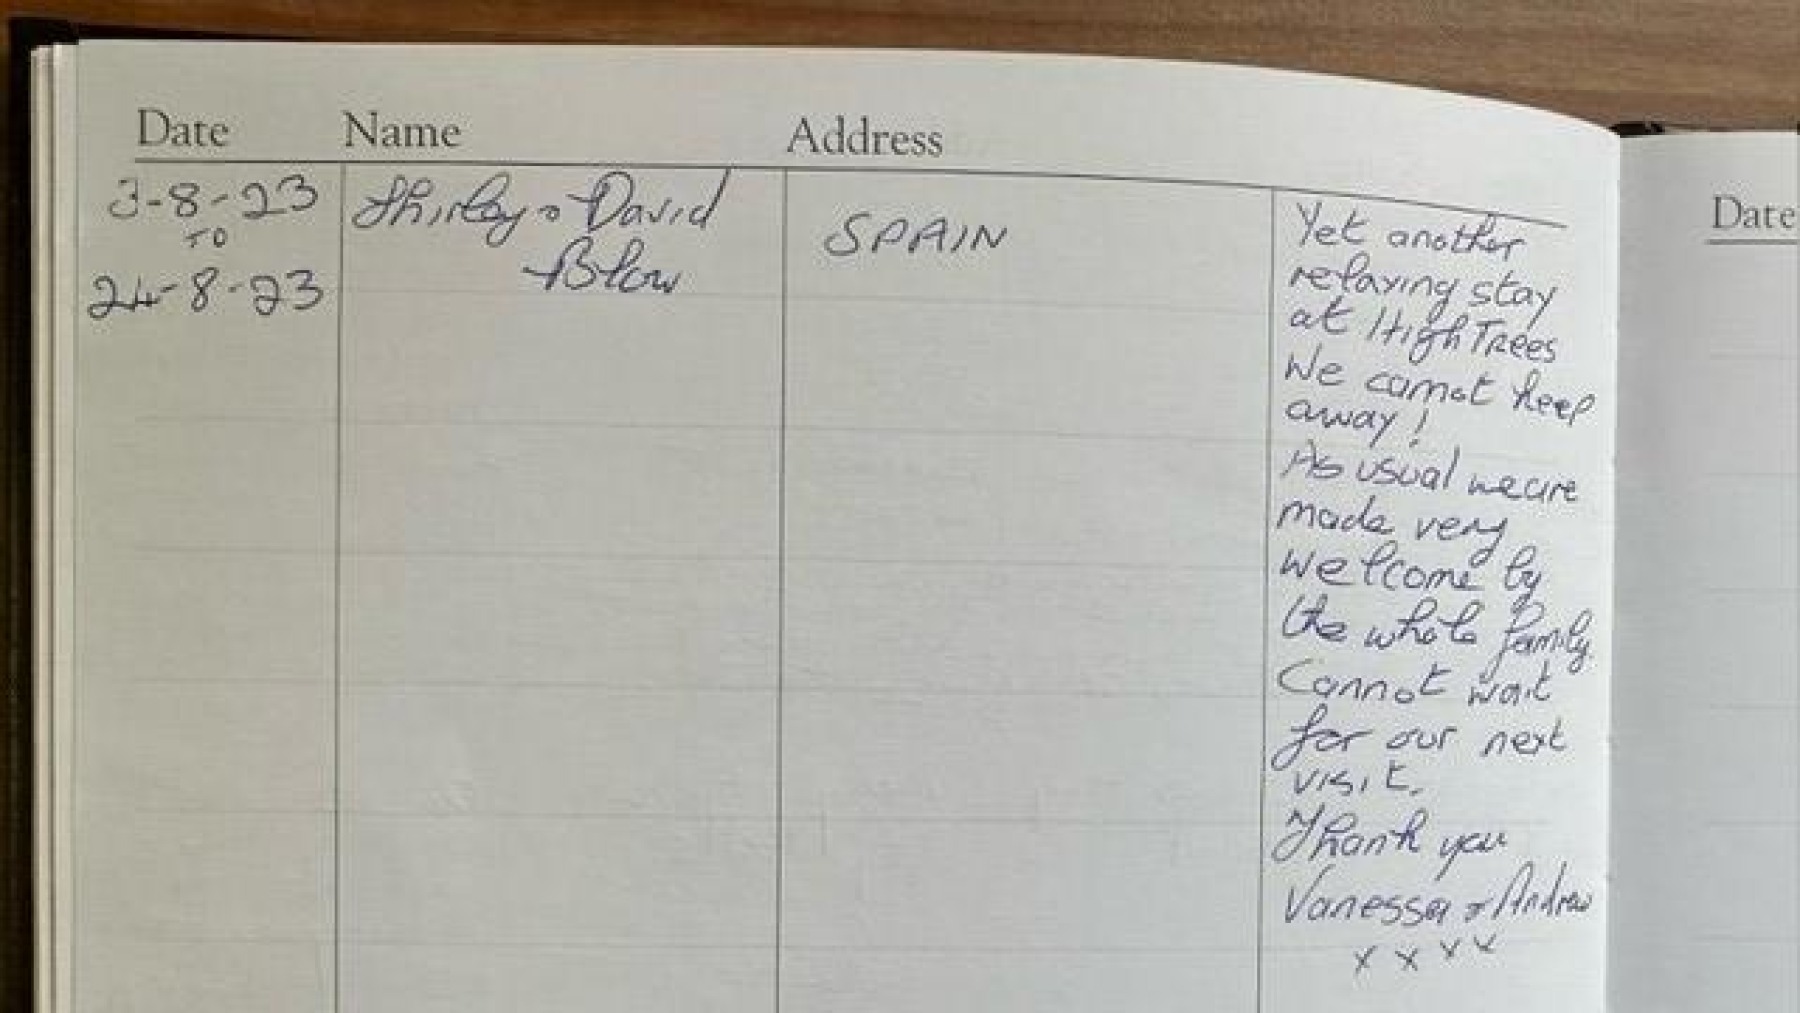 Date Name Address
3-8-23
TO
24-8-23
Shirley & David
Blow
SPAIN
Yet another
relaxing stay
at High Trees
We cannot keep
away!
As usual we are
made very
welcome by
the whole family.
Cannot wait
for our next
visit.
Thank you
Vanessa & Andrew
x x x x
Date